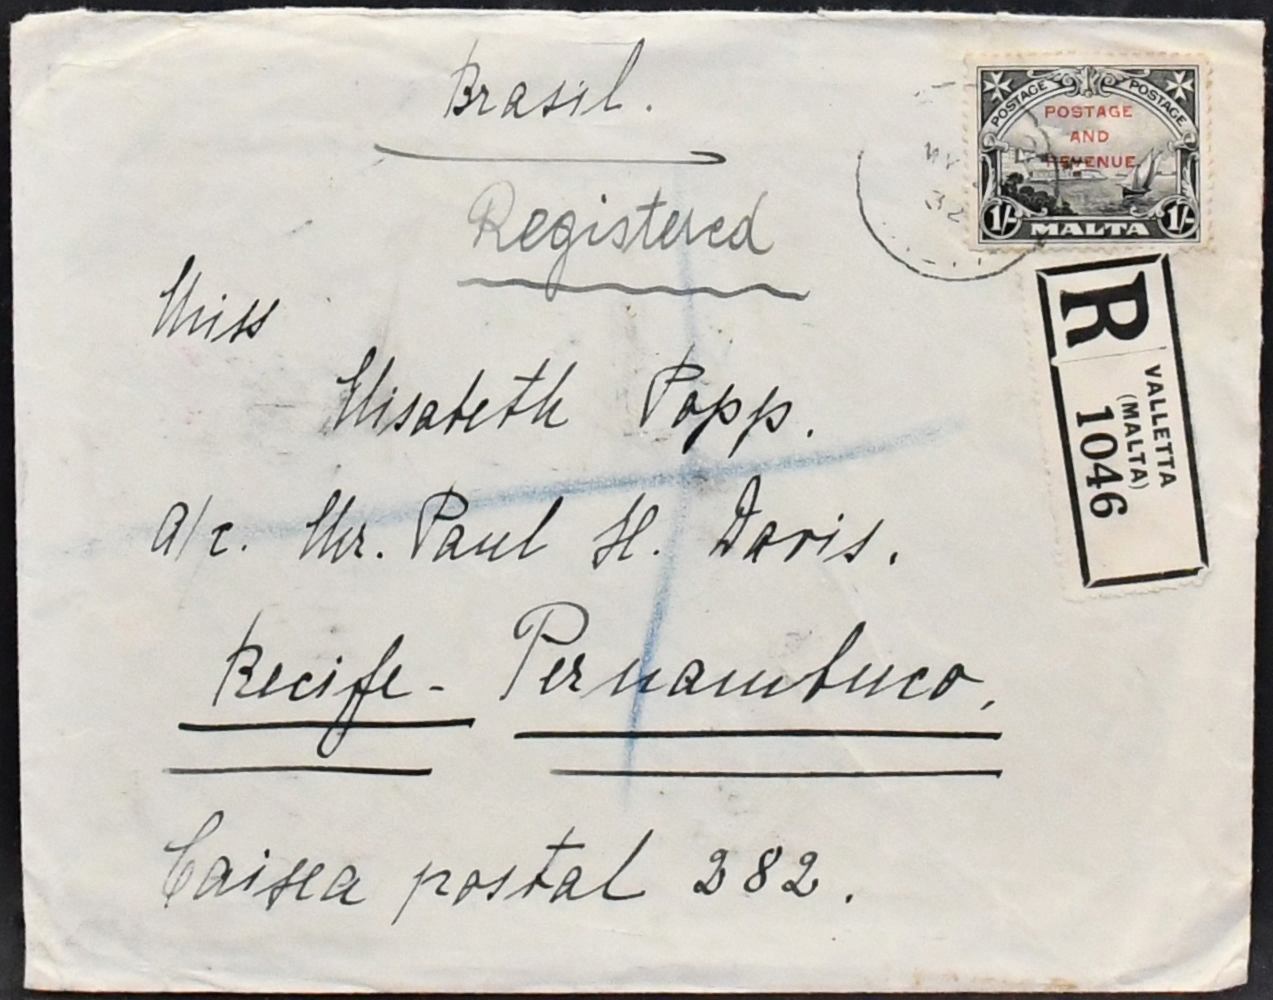 Brasil.
POSTAGE POSTAGE
POSTAGE
AND
REVENUE.
1/- MALTA 1/-
32
Registered
R
VALLETTA
(MALTA)
1046
Miss
Elisabeth Popp.
a/c. Mr. Paul H. Davis.
Recife - Pernambuco,
Caixa postal 282.